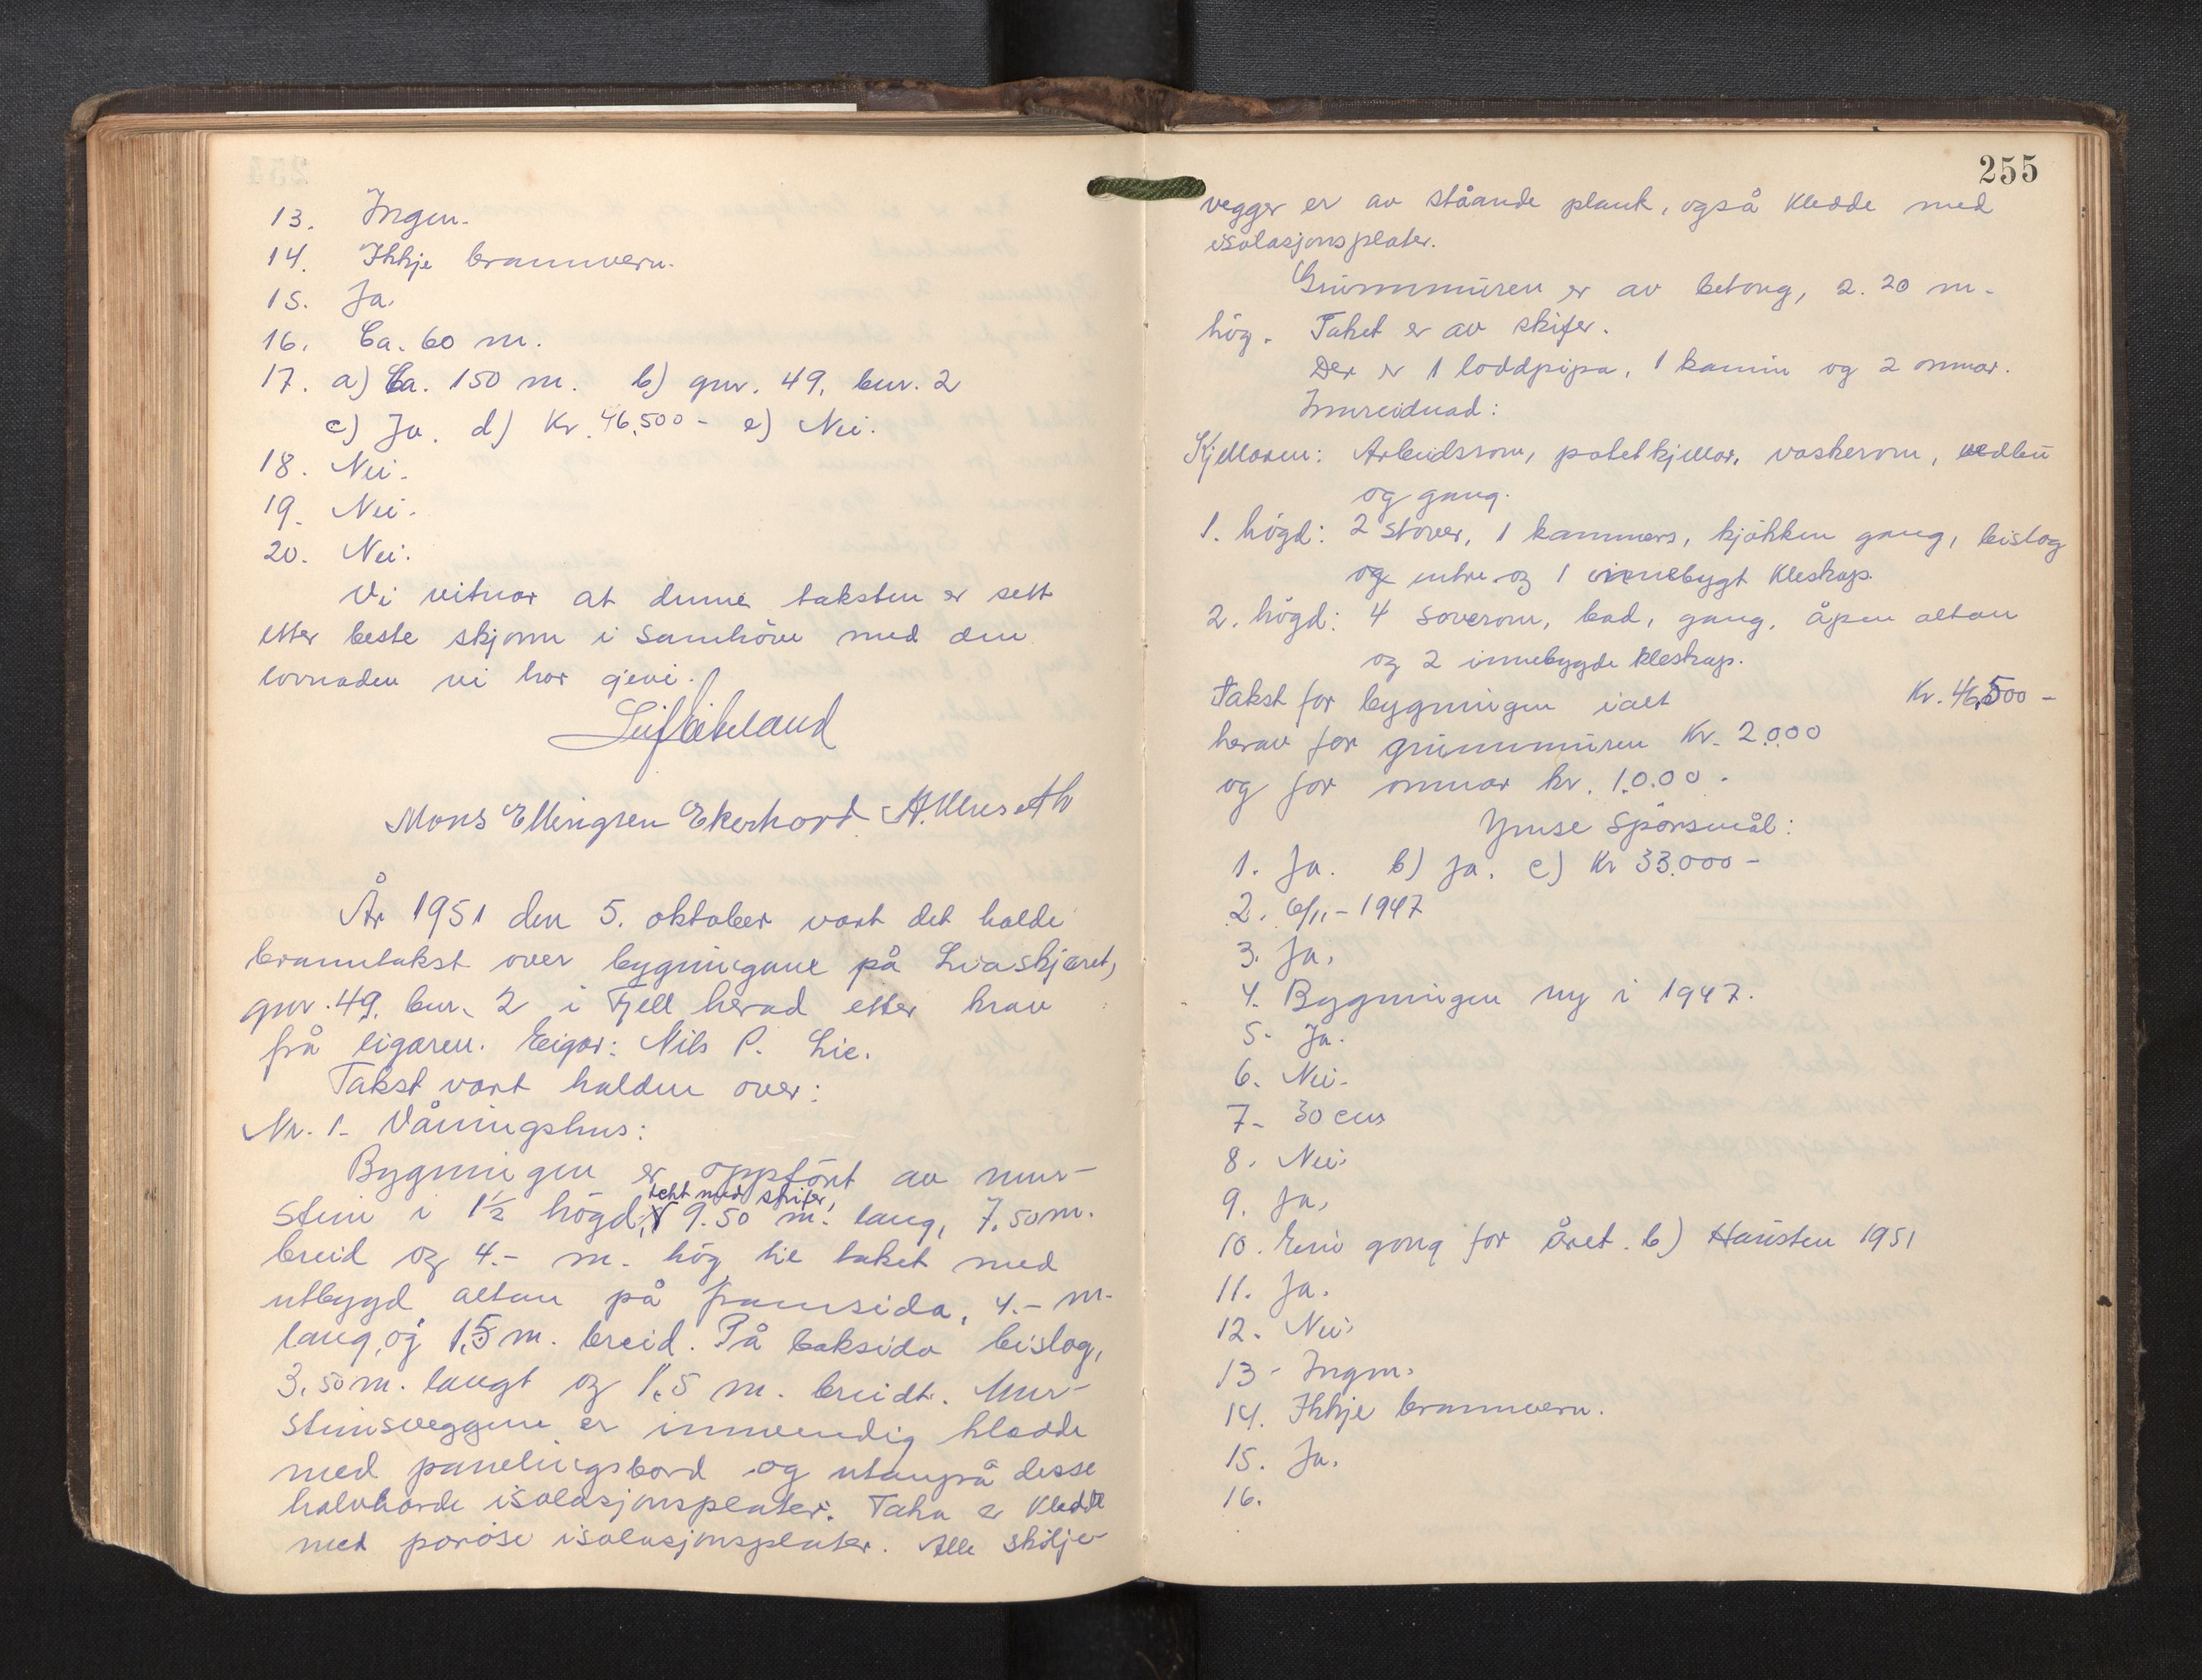 13. Ingen.
14. Ikkje brannvern.
15. Ja.
16. Ca. 60 m.
17. a) Ca. 150 m. b) gnr. 49, bnr. 2
c) Ja. d) Kr. 46.500 - e) Nei.
18. Nei.
19. Nei.
20. Nei.
Vi vitnar at denne taksten er sett
etter beste skjønn i samhøve med den
lovnaden vi har gjeve.
Mons Ellingsen Ekerhovd
År 1951 den 5. oktober vart det halde
branntakst over bygningane på Liaskjæret,
gnr. 49, bnr. 2 i Fjell herad etter krav
frå eigaren. Eigar: Nils P. Lie.
Takst vart halden over:
Nr. 1. Våningshus:
Bygningen er oppført av mur-
stein i 1½ høgd, tekt med skifer, 9.50 m. lang, 7,50 m.
breid og 4.- m. høg til taket med
utbygd altan på framsida, 4.- m.
lang, og 1,5 m. breid. På baksida bislag,
3,50 m. langt og 1,5 m. breidt. Mur-
steinsveggene er innvendig kledde
med panelingsbord og utanpå desse
halvharde isolasjonsplater. Taka er kledde
med porøse isolasjonsplater. Alle skilje-
255
vegger er av ståande plank, også kledde med
isolasjonsplater.
Grunnmuren er av betong, 2.20 m.
høg. Taket er av skifer.
Der er 1 loddpipa, 1 kamin og 2 omnar.
Innreidnad:
Kjellaren: Arbeidsrom, potetkjellar, vaskerom, vedbu
og gang.
1. høgd: 2 stover, 1 kammers, kjøkken gang, bislag
og entre og 1 innebygt kleskap.
2. høgd: 4 soverom, bad, gang, åpen altan
og 2 innebygde kleskap.
Takst for bygningen ialt Kr. 46,500 -
herav for grunnmuren Kr. 2.000
og for omnar kr. 1.000.
Ymse Spørsmål:
1. Ja. b) Ja. c) Kr 33.000 -
2. 6/11 - 1947
3. Ja.
4. Bygningen ny i 1947.
5. Ja.
6. Nei.
7. 30 cm
8. Nei.
9. Ja.
10. Ein gong for året. b) Hausten 1951
11. Ja.
12. Nei.
13. Ingen.
14. Ikkje brannvern.
15. Ja.
16.